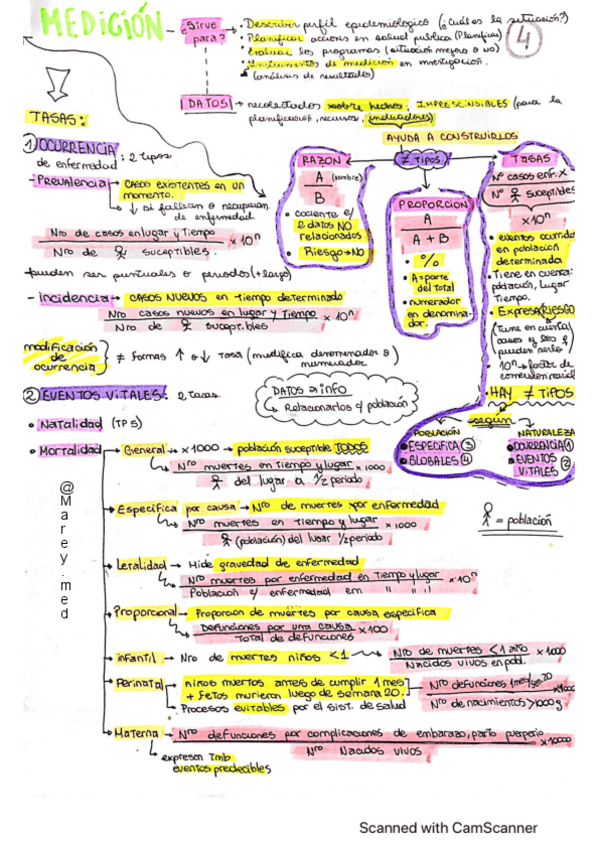 MEDICIÓN
¿Sirve para?
• Describir perfil epidemiológico (¿Cuál es la situación?)
• Planificar acciones en salud publica (Planificar)
• Evaluar los programas (situación mejora o no)
• Instrumentos de medición en investigación.
(análisis de resultados)
4
DATOS → recolectados sobre hechos, IMPRESCINDIBLES (para la
planificació, recursos, indicadores)
AYUDA A CONSTRUIRLOS
≠ TIPOS
TASAS:
1 OCURRENCIA: 2 tipos
de enfermedad
- Prevalencia → CASOS EXISTENTES EN UN
MOMENTO.
↓ si fallecen o recuperan
de enfermedad
Nro de casos en lugar y Tiempo
Nro de suceptibles.
×10ⁿ
- pueden ser puntuales o periodos (+ largo)
- incidencia → CASOS NUEVOS en Tiempo determinado
Nro casos nuevos en lugar y Tiempo
Nro de suceptibles
×10ⁿ
modificación
de
ocurrencia
≠ formas ↑ o ↓ Tasa (modifica denominador o
numerador)
RAZON
A
B
(nombre)
• cociente e/
2 datos NO
relacionados
• Riesgo → NO
PROPORCION
A
A + B
• %
• A = parte
del Total
• numerador
en denomina-
dor.
TASAS
Nº casos enf. x
Nº suceptibles
×10ⁿ
• eventos ocurrid
en población
determinada
• Tiene en cuenta:
población, Lugar
Tiempo.
• Expresa RIESGO
(Tiene en cuenta
casos y los q
pueden serlo)
10ⁿ → factor de
• HAY ≠ TIPOS
según
POBLACIÓN
• ESPECIFICA 3
• GLOBALES 4
NATURALEZA
• OCURRENCIA 1
• EVENTOS
VITALES 2
DATOS ≠ info
↳ Relacionarlos c/ población
= población
2 EVENTOS VITALES: 2 tasas
• Natalidad (TP 5)
• Mortalidad
General → x 1000 → población suceptible TODOS
Nro muertes en Tiempo y lugar
del lugar a 1/2 periodo
x 1000
Especifica por causa → Nro de muertes por enfermedad
Nro muertes en Tiempo y lugar
(población) del lugar 1/2 periodo
x 1000
Letalidad → Mide gravedad de enfermedad
Nro muertes por enfermedad en Tiempo y lugar
Población c/ enfermedad em " " "
×10ⁿ
Proporcional → Proporcion de muertes por causa especifica
Defunciones por una causa
Total de defunciones
x100
infantil → Nro de muertes niños <1
Nro de muertes <1 año
Nacidos vivos en pobl.
x 1000
Perinatal
niños muertos antes de cumplir 1 mes
+ fetos murieron luego de semana 20.
Procesos evitables por el sist. de salud
Nro defunciones 1mes/sem 20
Nº de nacimientos >1000g
x1000
Materna → Nro defunciones por complicaciones de embarazo, parto puerperio
Nro Nacidos vivos
x10000
↳ expresan Tmb
eventos predecibles
@Marey.med
Scanned with CamScanner